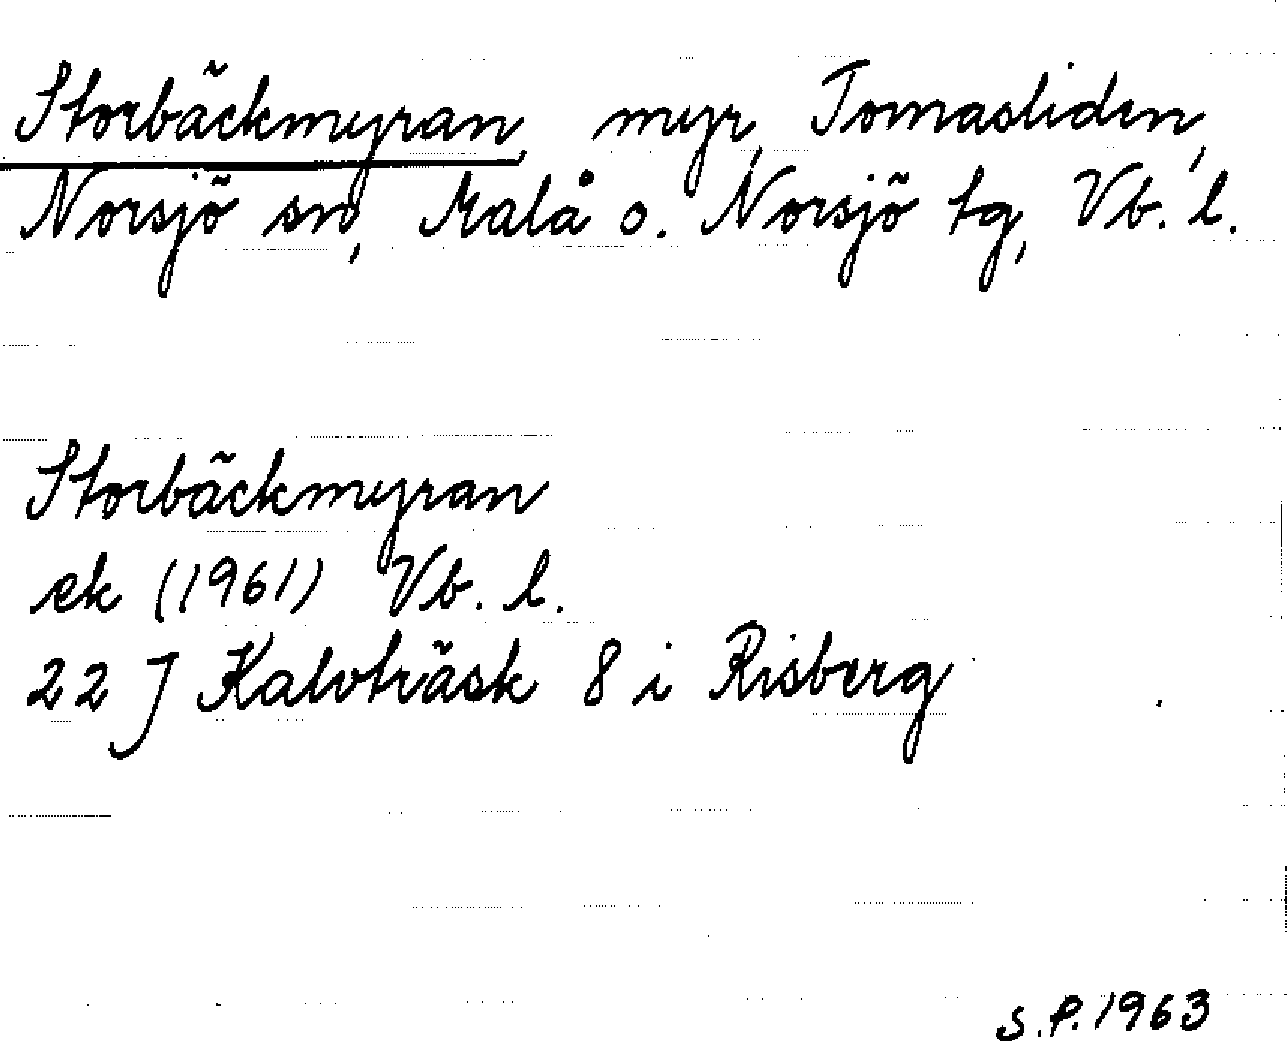 Storbäckmyran, myr, Tomasliden,
Norsjö sn, Malå o. Norsjö tg, Vb. l.
Storbäckmyran
ek (1961) Vb. l.
22 J Kalvträsk 8 i Risberg
S.P. 1963